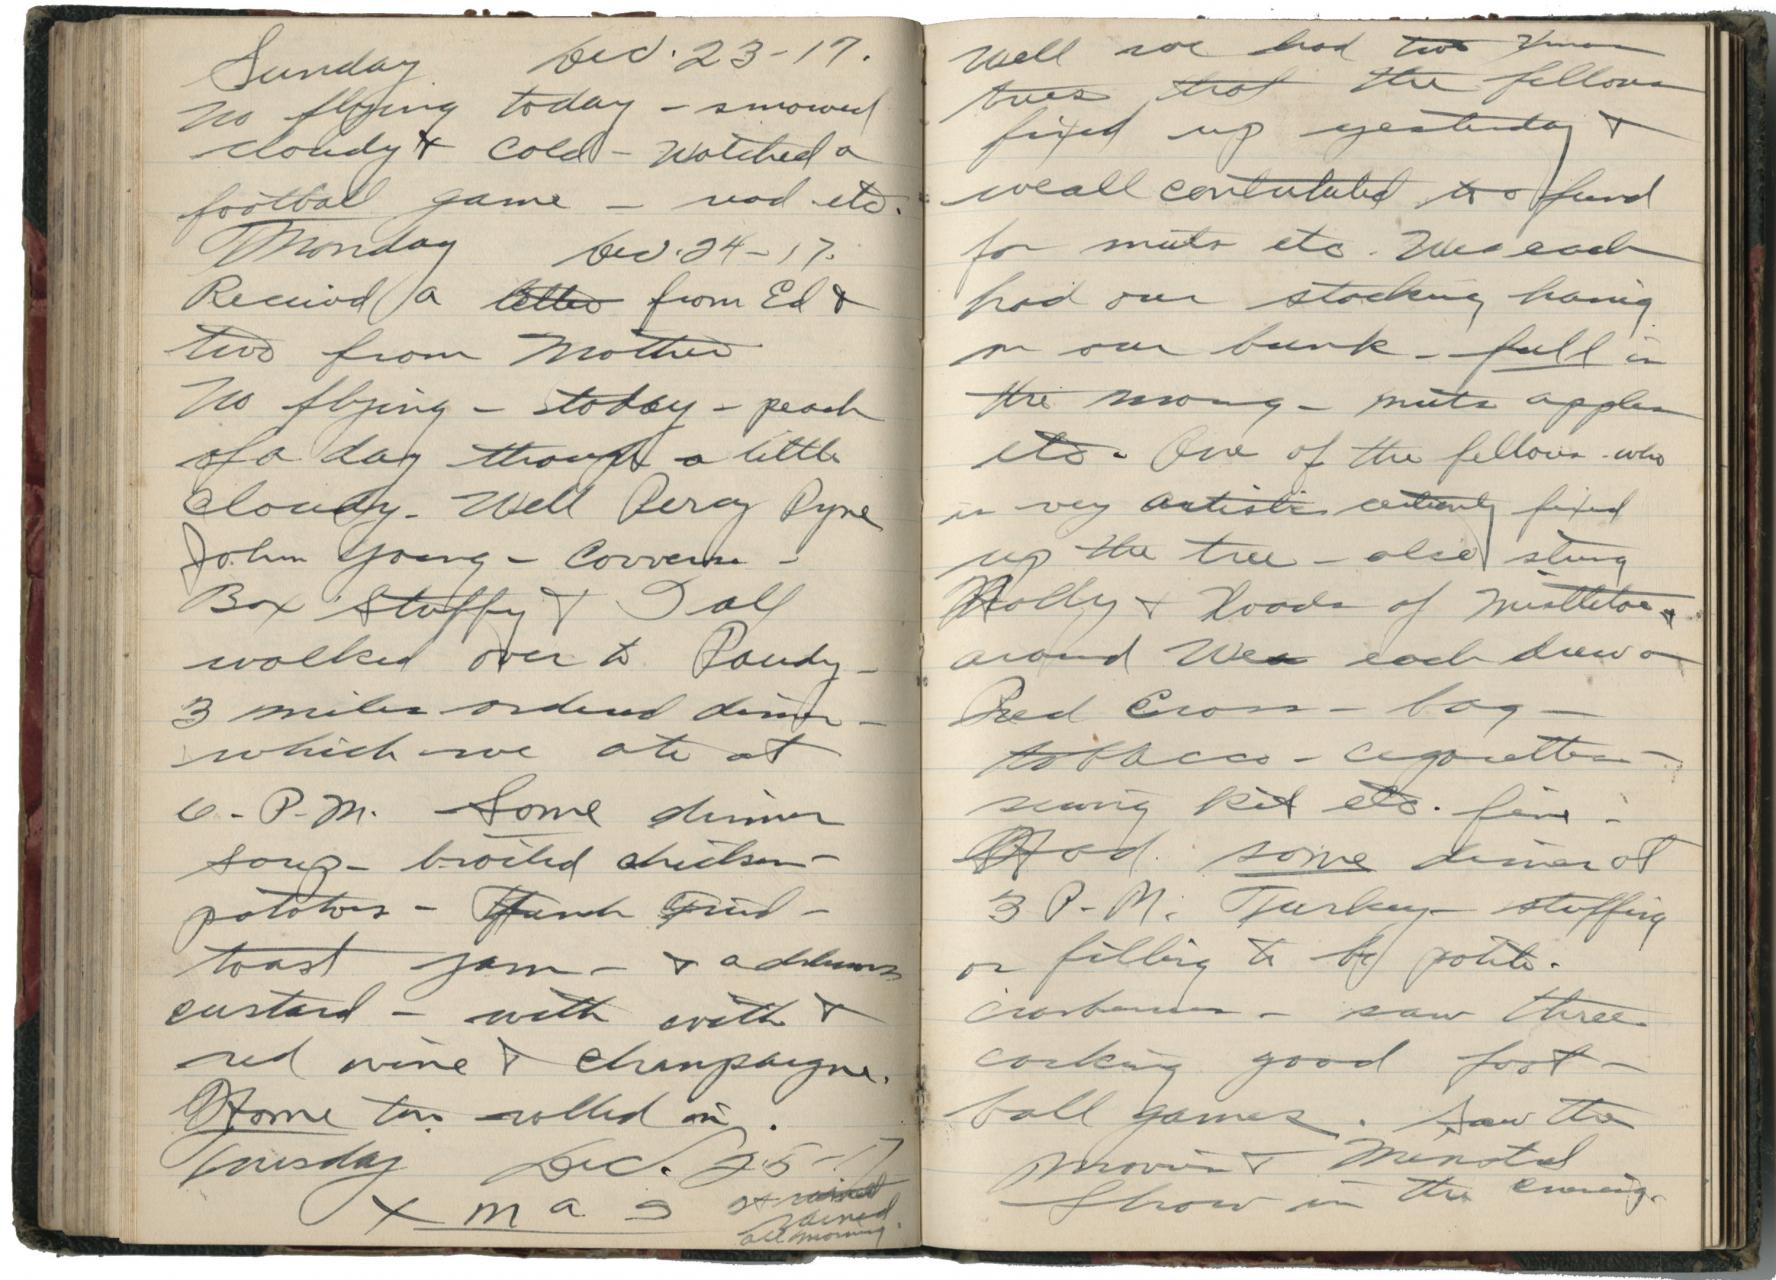 Sunday Dec. 23-17.
No flying today - snowed
cloudy & cold - Watched a
football game - read etc.
Monday Dec. 24-17.
Received a letter from Ed &
two from Mother
No flying - today - peach
of a day though a little
cloudy. Well Percy Pyne
John Young - Correns -
Box Stuffy & I all
walked over to Pandy -
3 miles ordered dinner -
which we ate at
6 - P.M. Some dinner
soup - broiled chicken -
potatoes - French fried -
toast jam - & a delicious
custard - with &
red wine & champaigne.
Home rolled in.
Tuesday Dec. 25-17
Xmas It rained
rained
all morning.
Well we had two Xmas
trees that the fellows
fixed up yesterday &
we all contributed to a fund
for nuts etc. We each
had our stocking hanig
on our bunk - full in
the morng - nuts apples
etc. One of the fellows who
is very artistic certainly fixed
up the tree - also strung
Holly & loads of mistletoe
around We each drew a
Red Cross - bag -
tobacco - cigarettes -
sewing kit etc. fine -
Had some dinner at
3 P.M. Turkey - stuffing
or filling to be polite.
cranberries - saw three
corking good foot -
ball games. Saw the
Movies & Minstrel
Show in the evening.